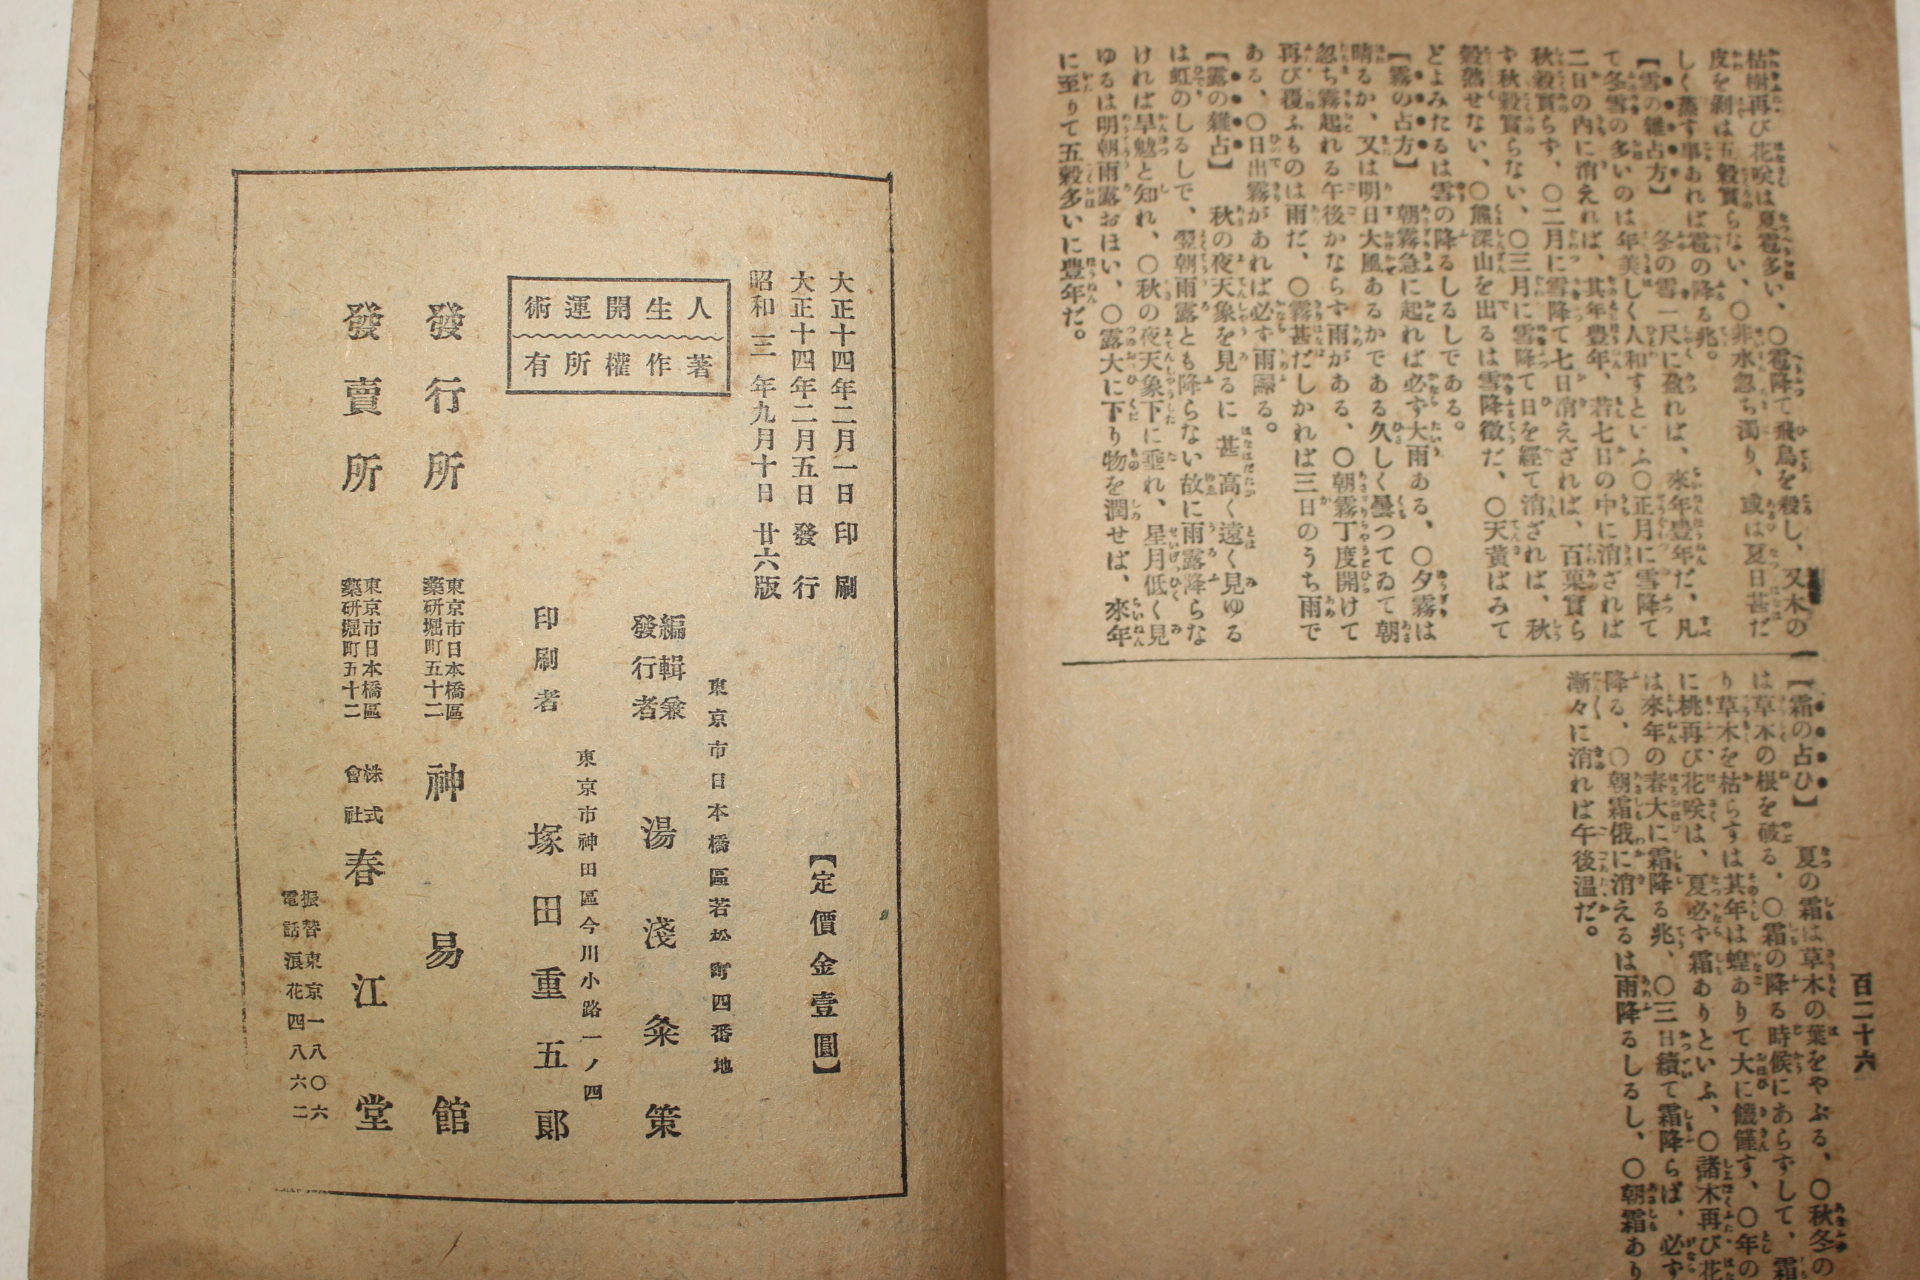 百二十六
枯樹再び花咲は夏雹多い、〇雹降て飛鳥を殺し、又木の
皮を剝は五穀實らない、〇井水忽ち濁り、或は夏日甚だ
しく蒸す事あれば雹の降る兆。
【雪の雜占方】 冬の雪一尺に盈れば、來年豊年だ、凡
て冬雪の多いのは年美しく人和すといふ〇正月に雪降て
二日の內に消えれば、其年豊年、若七日の中に消ざれば
秋穀實らず、〇二月に雪降て七日消えざれば、百菓實ら
ず秋穀實らない、〇三月に雪降て日を經て消ざれば、秋
穀熟せない、〇熊深山を出るは雪降徵だ、〇天黃ばみて
どよみたるは雪の降るしるしである。
【霧の占方】 朝霧急に起れば必ず大雨ある、〇夕霧は
晴るか、又は明日大風あるかである久しく曇つてゐて朝
忽ち霧起れる午後かならず雨がある、〇朝霧丁度開けて
再び覆ふものは雨だ、〇霧甚だしかれば三日のうち雨で
ある、〇日出霧があれば必ず雨降る。
【露の雜占】 秋の夜天象を見るに 甚高く遠く見ゆる
は虹のしるしで、翌朝雨露とも降らない故に雨露降らな
ければ旱魃と知れ、〇秋の夜天象下に垂れ、星月低く見
ゆるは明朝雨露おほい、〇露大に下り物を潤せば、來年
に至りて五穀多いに豊年だ。
【霜の占ひ】 夏の霜は草木の葉をやぶる、〇秋冬の
は草木の根を破る、〇霜の降る時候にあらずして、霜
り草木を枯らすは其年は蝗ありて大に饑饉す、〇年の
に桃再び花咲は、夏必ず霜ありといふ、〇諸木再び花
は來年の春大に霜降る兆、〇三日續て霜降らば、必ず
降る、〇朝霜俄に消えるは雨降るしるし、〇朝霜あり
漸々に消れば午後温だ。
大正十四年二月一日 印刷
大正十四年二月五日 發行
昭和三年九月十日 廿六版
【定價金壹圓】
人生開運術
著作權所有
東京市日本橋區若松町四番地
編輯兼
發行者 湯淺粂策
東京市神田區今川小路一ノ四
印刷者 塚田重五郎
發行所 東京市日本橋區藥研堀町五十二 神易館
發賣所 東京市日本橋區藥研堀町五十二 株式會社 春江堂
振替東京一八〇六
電話浪花四八六二